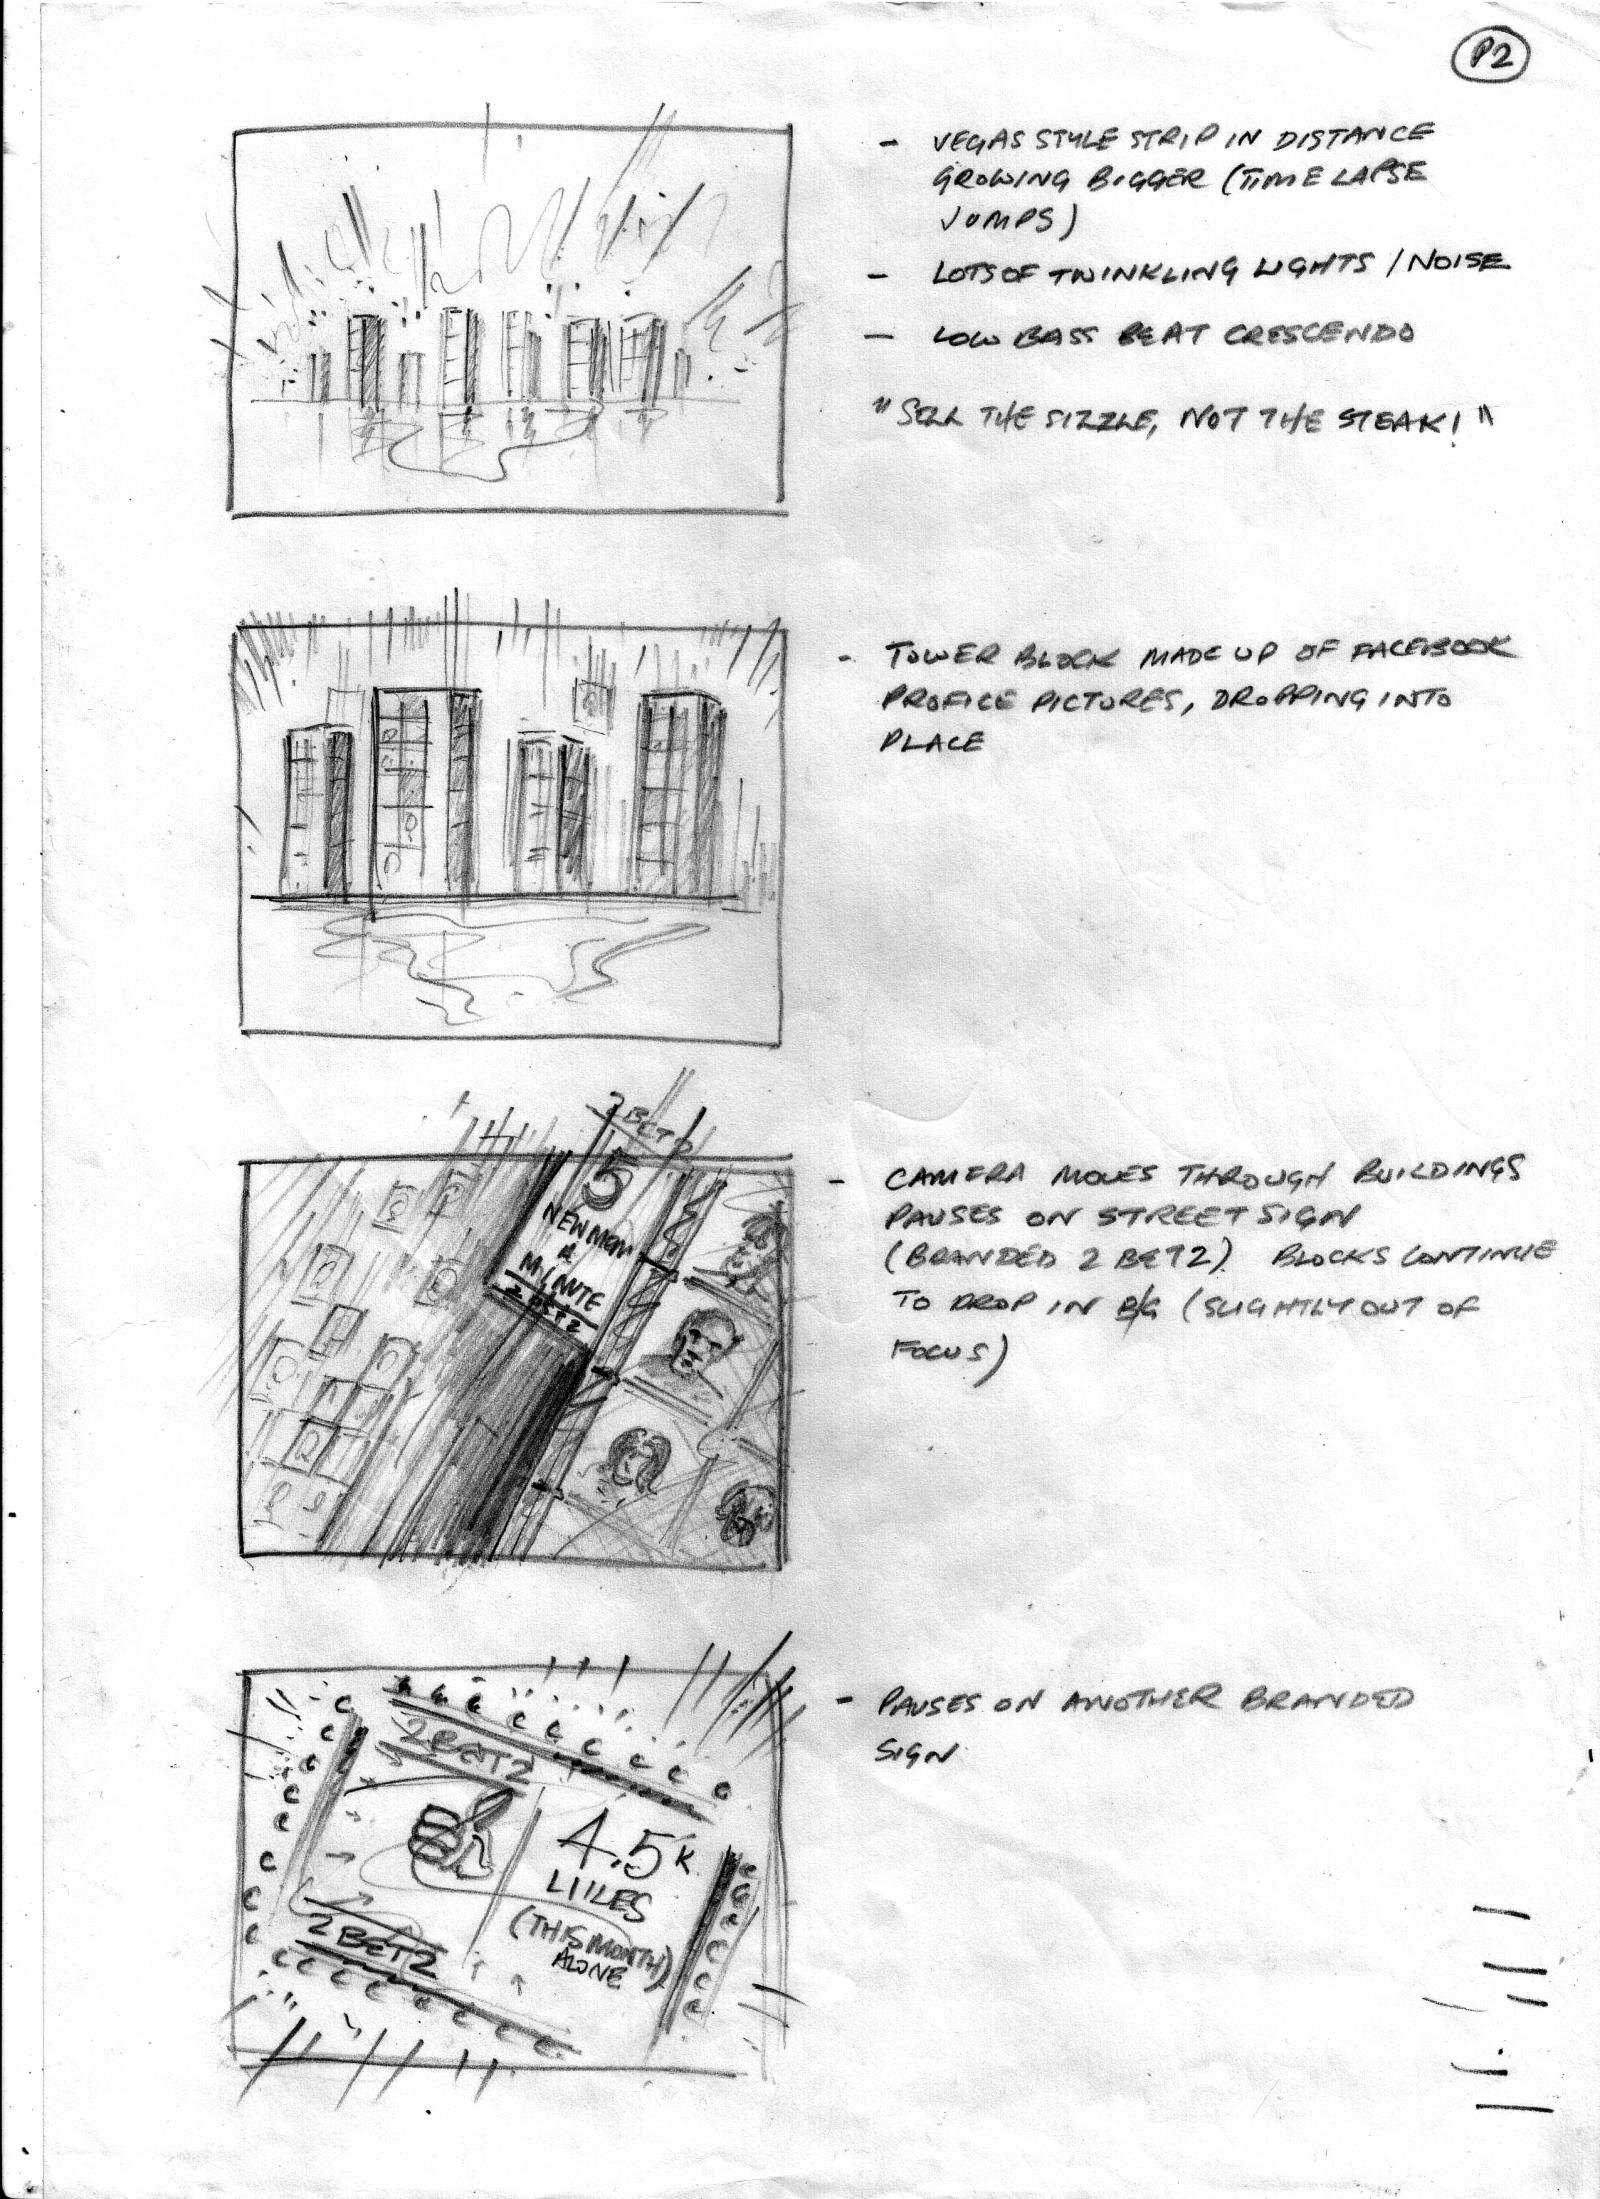 P2
- VEGAS STYLE STRIP IN DISTANCE
GROWING BIGGER (TIME LAPSE
JUMPS)
- LOTS OF TWINKLING LIGHTS / NOISE
- LOW BASS BEAT CRESCENDO
"SELL THE SIZZLE, NOT THE STEAK!"
- TOWER BLOCK MADE UP OF FACEBOOK
PROFILE PICTURES, DROPPING INTO
PLACE
2 BET 2
5
NEW MEM
A
MINUTE
2 BET 2
- CAMERA MOVES THROUGH BUILDINGS
PAUSES ON STREET SIGN
(BRANDED 2 BET 2) BLOCKS CONTINUE
TO DROP IN B/G (SLIGHTLY OUT OF
FOCUS)
2BET2
4.5K
LIKES
(THIS MONTH)
ALONE
2BET2
- PAUSES ON ANOTHER BRANDED
SIGN